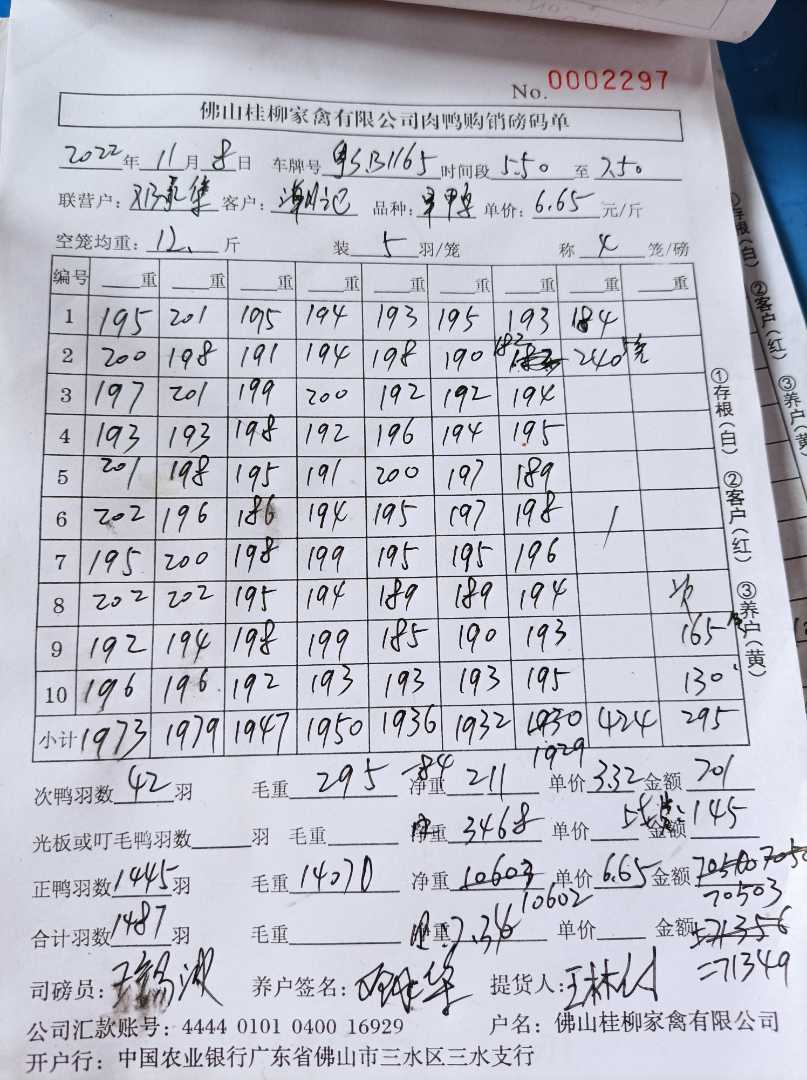 No. 0002297
佛山桂柳家禽有限公司肉鸭购销磅码单
2022年 11月 8日 车牌号 粤S.B1165 时间段 5.50 至 7.50
联营户: 客户: 品种: 单价: 6.65 元/斤
空笼均重: 12. 斤 装 5 羽/笼 称 4 笼/磅
编号 重 重 重 重 重 重 重 重 重
1 195 201 195 194 193 195 193 184
2 200 198 191 194 198 190 182 240
3 197 201 199 200 192 192 194
4 193 193 198 192 196 194 195
5 201 198 195 191 200 197 189
6 202 196 186 194 195 197 198
7 195 200 198 199 195 195 196
8 202 202 195 194 189 189 194
9 192 194 198 199 185 190 193 165
10 196 196 192 193 193 193 195 130
小计 1973 1979 1947 1950 1936 1932 1930 424 295
1929
次鸭羽数 42 羽 毛重 295 -84 净重 211 单价 3.32 金额 701
光板或叮毛鸭羽数 羽 毛重 净重 3468 单价 金额 145
正鸭羽数 1445 羽 毛重 14070 净重 10603 单价 6.65 金额
10602 70503
合计羽数 1487 羽 毛重 净重 7.36 单价 金额 71356
=71349
司磅员: 养户签名: 提货人:
公司汇款账号: 4444 0101 0400 16929 户名: 佛山桂柳家禽有限公司
开户行: 中国农业银行广东省佛山市三水区三水支行
①存根(白) ②客户(红) ③养户(黄)
①存根(白) ②客户(红) ③养户(黄)